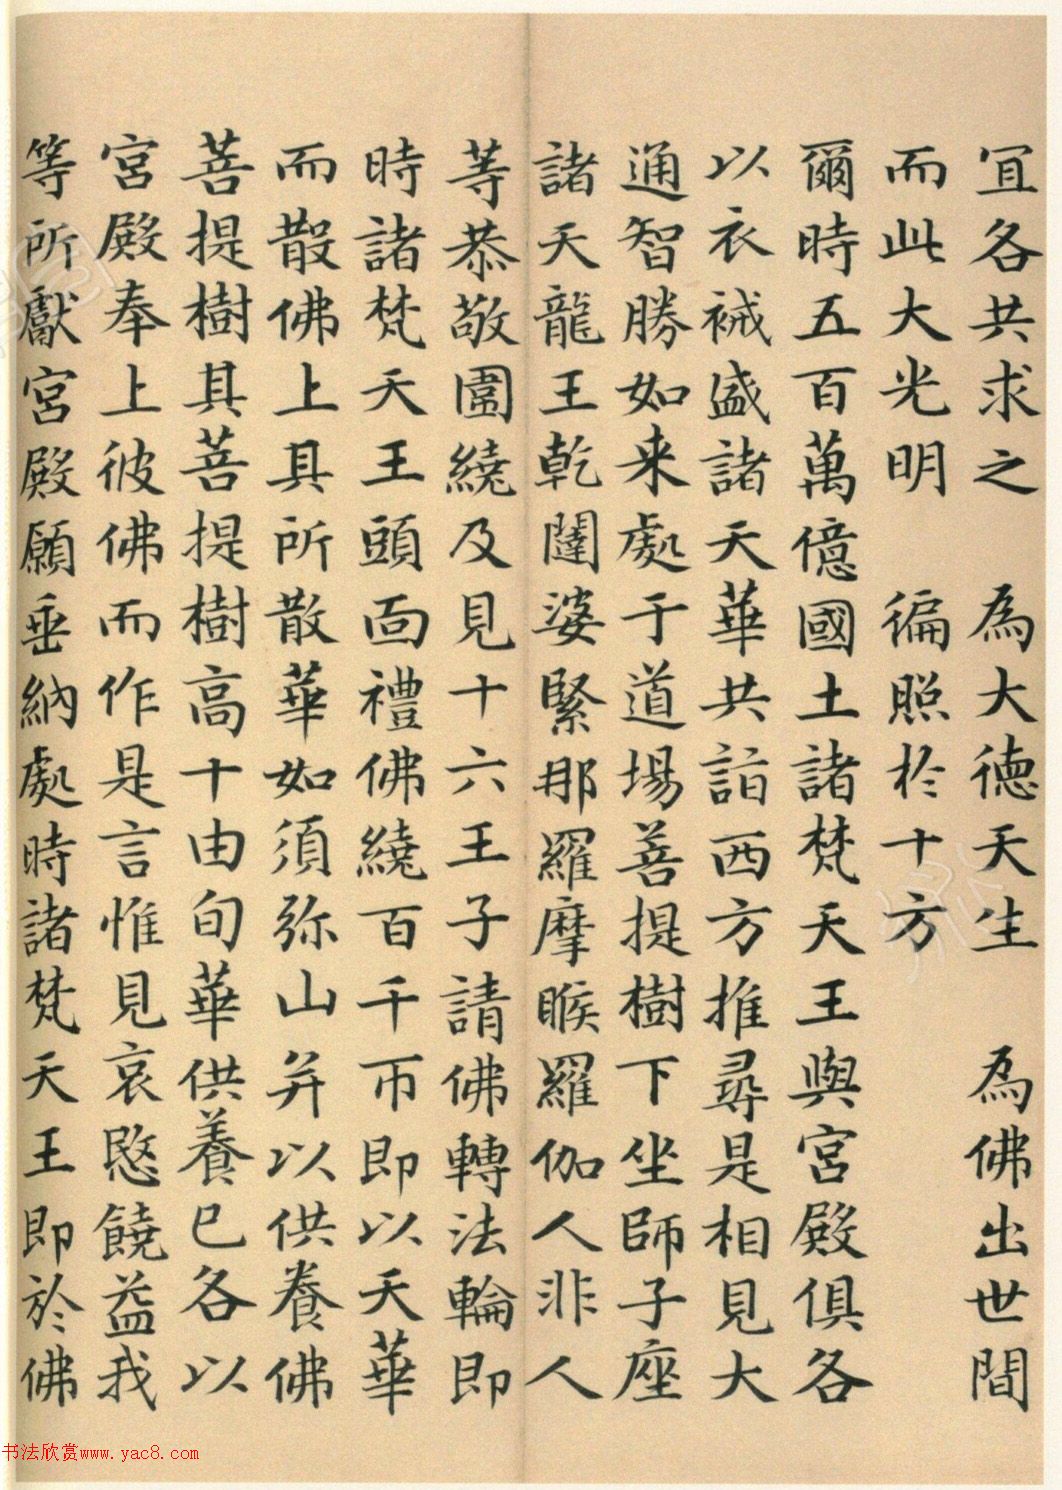 宜各共求之　為大德天生　為佛出世間
而此大光明　徧照於十方
爾時五百萬億國土諸梵天王與宮殿俱各
以衣祴盛諸天華共詣西方推尋是相見大
通智勝如来處于道場菩提樹下坐師子座
諸天龍王乾闥婆緊那羅摩睺羅伽人非人
等恭敬圍繞及見十六王子請佛轉法輪即
時諸梵天王頭面禮佛繞百千帀即以天華
而散佛上其所散華如須弥山并以供養佛
菩提樹其菩提樹高十由旬華供養已各以
宮殿奉上彼佛而作是言惟見哀愍饒益我
等所獻宮殿願垂納處時諸梵天王即於佛
书法欣赏www.yac8.com